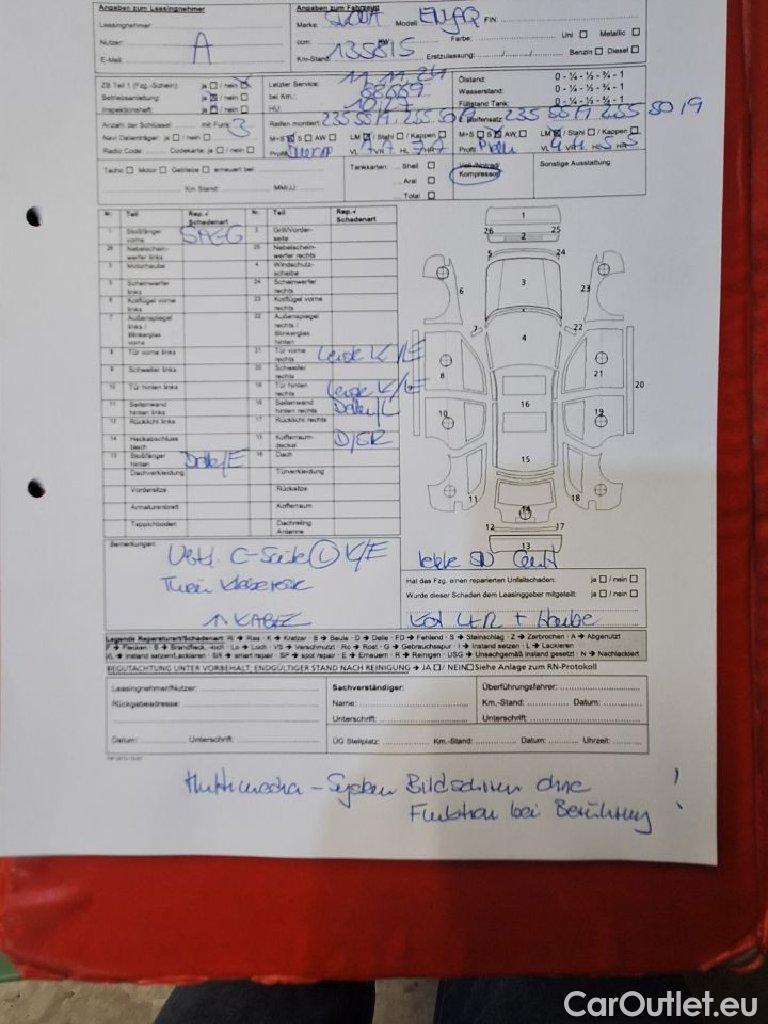 Angaben zum Leasingnehmer
Angaben zum Fahrzeug
Leasingnehmer:
Marke: SKODA Modell: ENYAQ FIN:
Nutzer: A
ccm: KW Farbe: Uni Metallic
E-Mail:
Km-Stand: 135815 Erstzulassung: Benzin Diesel
ZB Teil 1 (Fzg.-Schein): ja / nein
Betriebsanleitung: ja / nein
Inspektionsheft: ja / nein
Letzter Service: 11.11.24
bei Km.:
HU:
Ölstand: 0 - ¼ - ½ - ¾ - 1
Wasserstand: 0 - ¼ - ½ - ¾ - 1
Füllstand Tank: 0 - ¼ - ½ - ¾ - 1
Anzahl der Schlüssel mit Funk: 3
Reifen montiert: 235 55 19, 255 50 19
235 55 19 255 50 19
Navi Datenträger: ja / nein
M+S S AW LM / Stahl / Kappen
M+S S AW LM / Stahl / Kappen
Radio Code: Codekarte: ja / nein
Profil VL 7 VR 7 HL 7 HR 7
Profil VL 4 VR 4 HL 5 HR 5
Tacho Motor Getriebe erneuert bei:
Km Stand: MM/JJ:
Tankkarten: Shell
Aral
Total
Kompressor
Sonstige Ausstattung
Nr. Teil Rep.-/ Schadenart Nr. Teil Rep.-/ Schadenart
1 Stoßfänger vorne
2 Grill/Vorderseite
26 Nebelscheinwerfer links
25 Nebelscheinwerfer rechts
3 Motorhaube
4 Windschutzscheibe
5 Scheinwerfer links
24 Scheinwerfer rechts
6 Kotflügel vorne links
23 Kotflügel vorne rechts
7 Außenspiegel links / Blinkerglas vorne
22 Außenspiegel rechts / Blinkerglas hinten
8 Tür vorne links
21 Tür vorne rechts Leiste K/E
9 Schweller links
20 Schweller rechts
10 Tür hinten links
19 Tür hinten rechts Leiste K/E
11 Seitenwand hinten links
18 Seitenwand hinten rechts Delle/L
12 Rücklicht links
17 Rücklicht rechts
14 Heckabschlussblech
15 Kofferraumdeckel D/SR
13 Stoßfänger hinten Delle/E
16 Dach
Dachverkleidung
Türverkleidung
Vordersitze
Rücksitze
Armaturenbrett
Kofferraum
Teppichboden
Dachreling Antenne
1
26 25
2
5 24
3
6 23
7 22
4
8 21
20
16
10 19
15
11 18
14
12 17
13
Bemerkungen:
C-Säule (L) K/E
↑ KABEL
Hat das Fzg. einen reparierten Unfallschaden: ja / nein
Wurde dieser Schaden dem Leasinggeber mitgeteilt: ja / nein
+ Haube
Legende Reparaturart/Schadenart: RI → Riss - K → Kratzer - B → Beule - D → Delle - FD → Fehlend - S → Steinschlag - Z → Zerbrochen - A → Abgenutzt
F → Flecken - B → Brandfleck, -loch - Lo → Loch - VS → Verschmutzt - Ro → Rost - G → Gebrauchsspur - I → Instand setzen - L → Lackieren
IL → Instand setzen/Lackieren - SR → smart repair - SP → spot repair - E → Erneuern - R → Reinigen - USG → Unsachgemäß instand gesetzt - N → Nachlackiert
BEGUTACHTUNG UNTER VORBEHALT: ENDGÜLTIGER STAND NACH REINIGUNG → JA / NEIN Siehe Anlage zum RN-Protokoll
Leasingnehmer/Nutzer:
Sachverständiger:
Überführungsfahrer:
Rückgabeadresse:
Name:
Km.-Stand: Datum:
Unterschrift:
Unterschrift:
Datum: Unterschrift:
ÜG Stellplatz: Km.-Stand: Datum: Uhrzeit:
Multimedia - System Bildschirm ohne
Funktion bei Berührung !
CarOutlet.eu